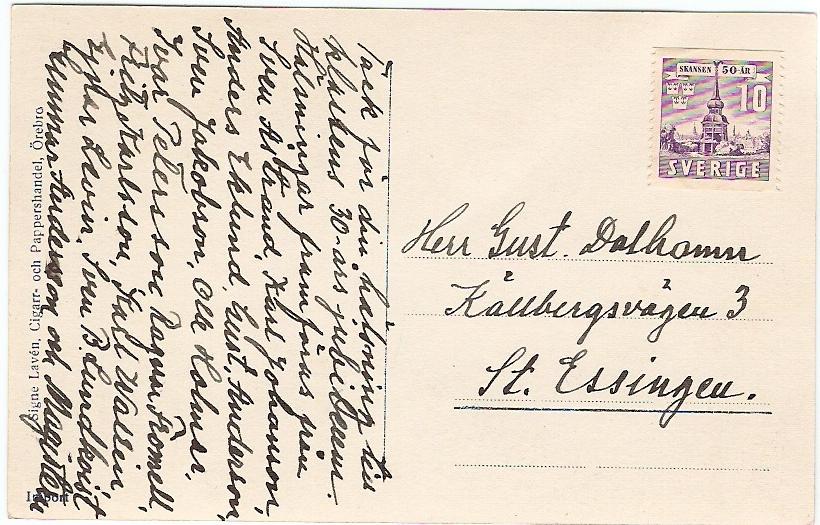 Tack för din hälsning till
klubbens 30-års jubileum.
Hälsningar framföras från
Sven Åstrand, Karl Johanson,
Anders Eklund, Gust. Anderson,
Sven Jakobson, Olle Holmer,
Ivar Peterson, Ragnar Fromell,
Fritz Karlsson, Wallin,
Lavin, Sven B. Lundkvist
Gunnar Anderson och Magister
Signe Lavén, Cigarr- och Pappershandel, Örebro
Import
SKANSEN 50-ÅR
10
SVERIGE
Herr Gust. Dalhamn
Källbergsvägen 3
St. Essingen.